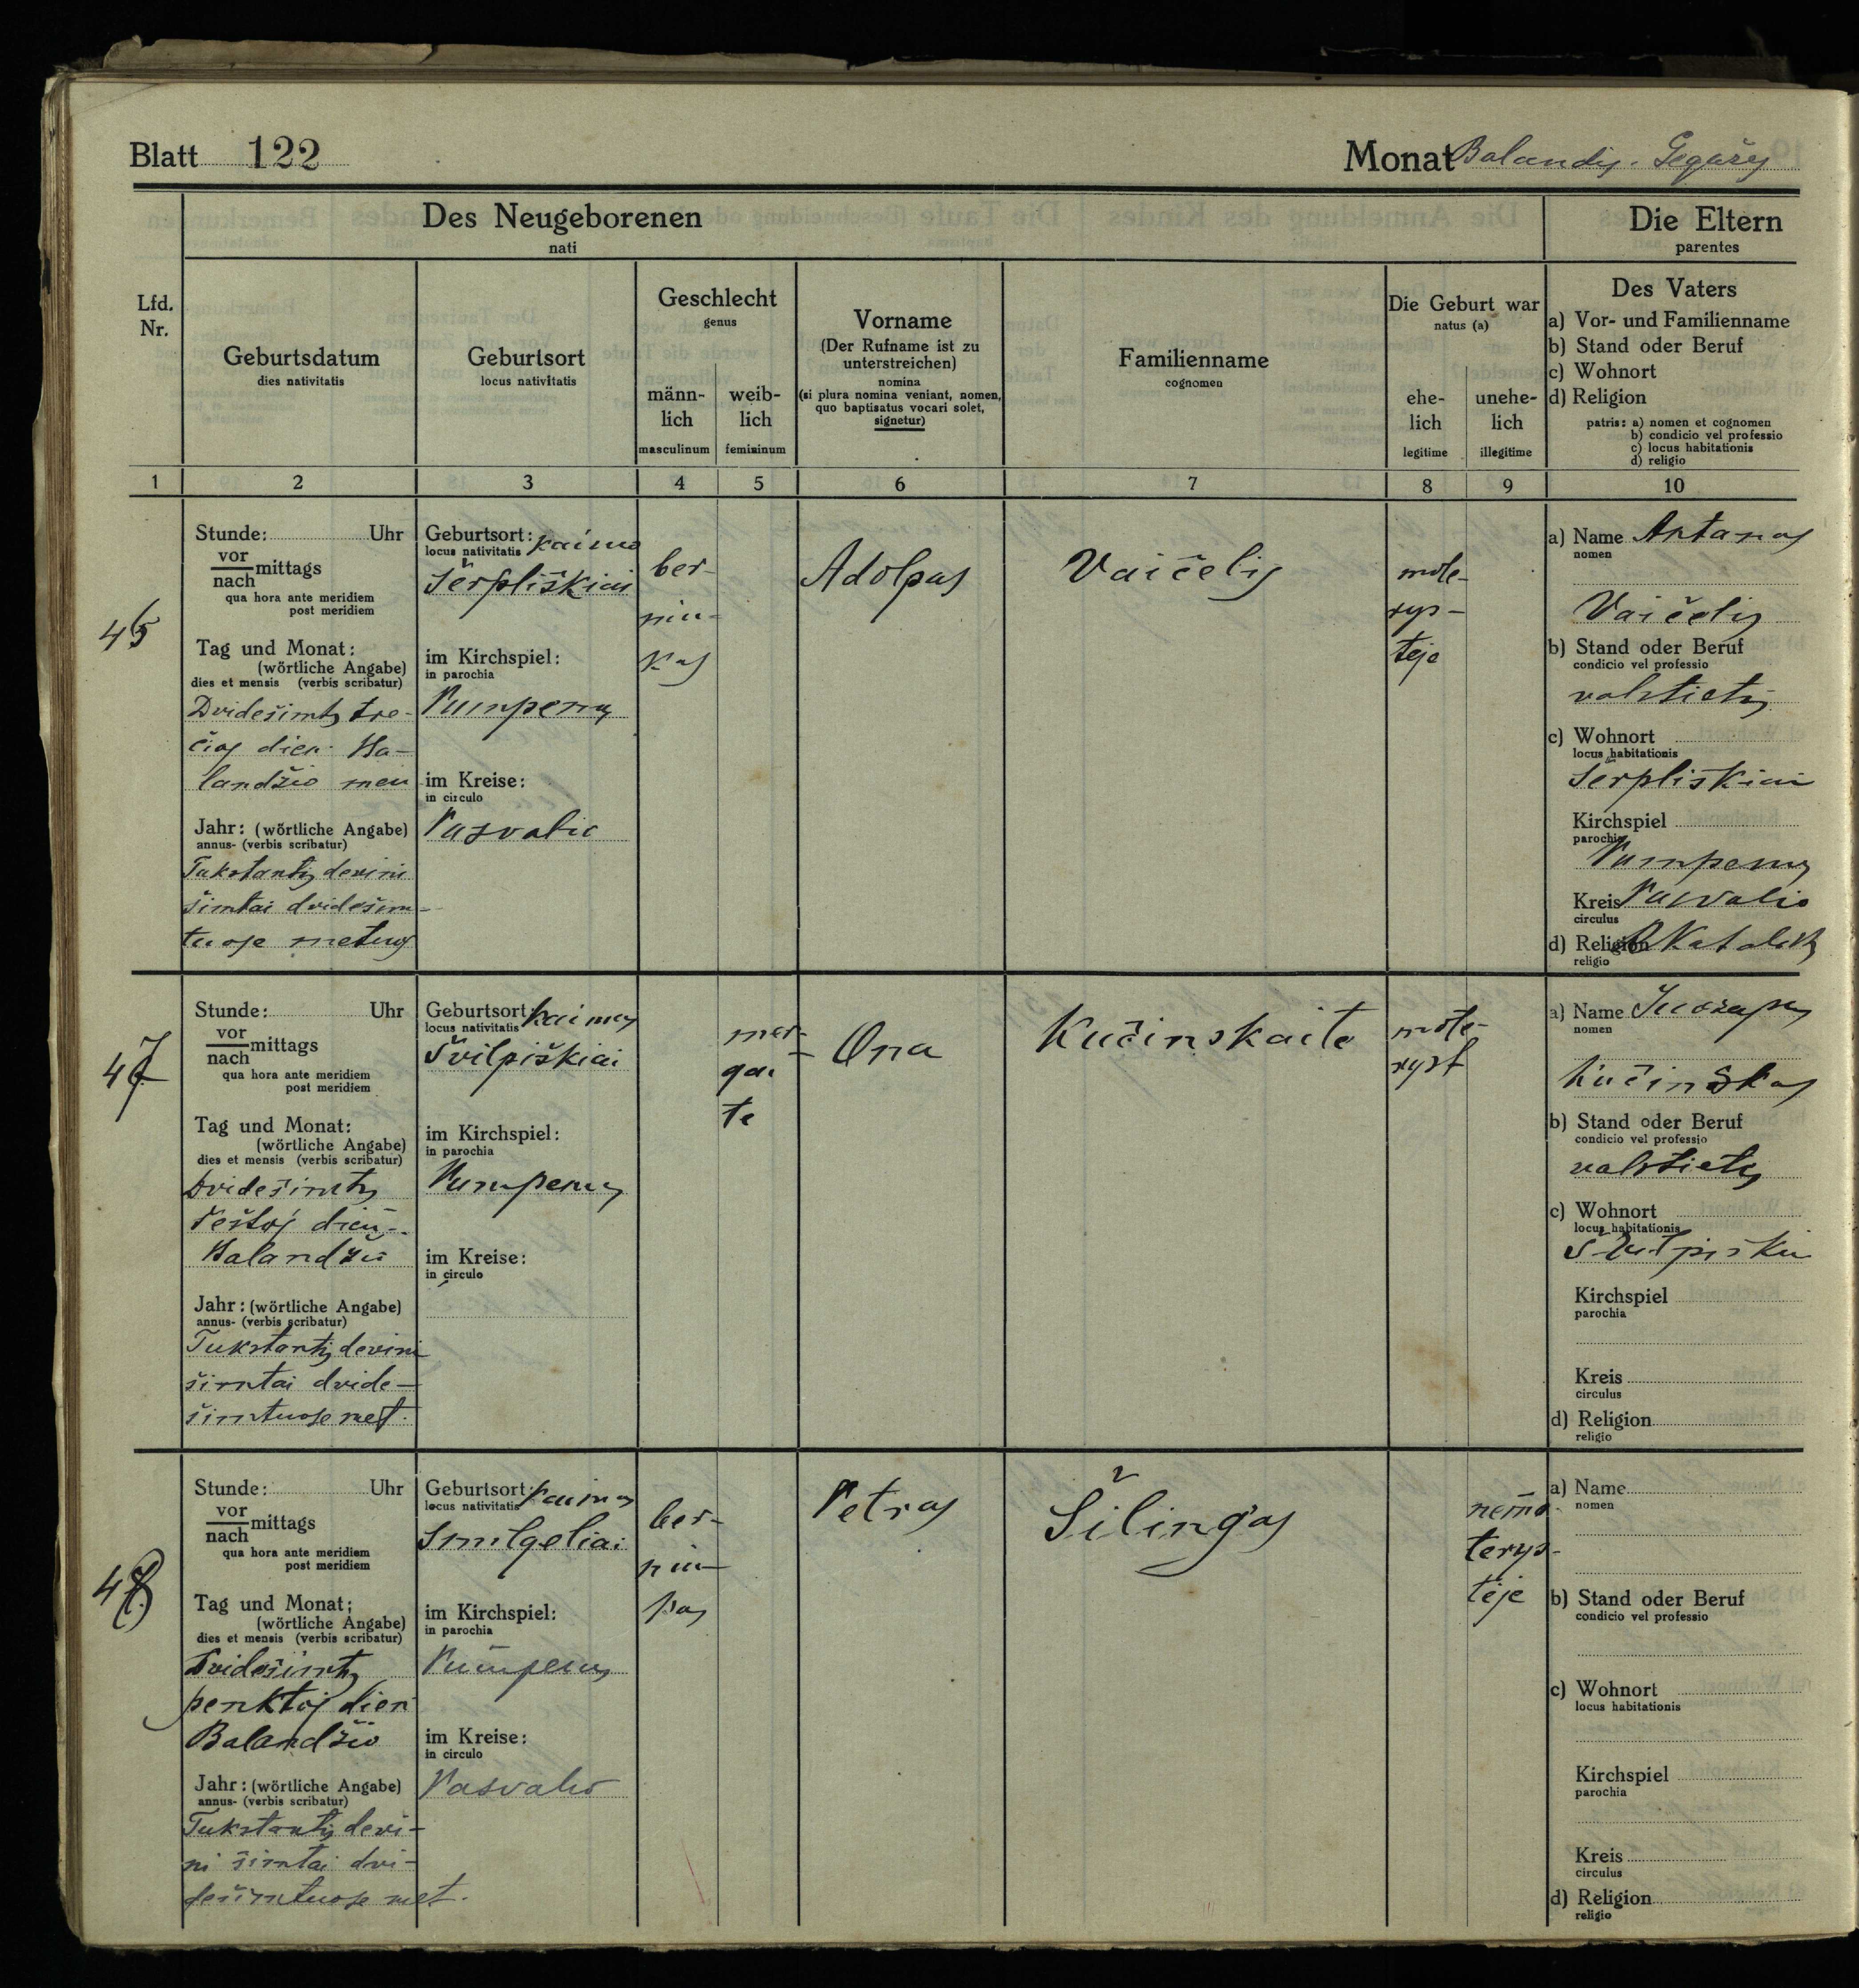 Blatt 122
Monat Balandis. Gegužis
Des Neugeborenen
nati
Die Eltern
parentes
Lfd.
Nr.
Geburtsdatum
dies nativitatis
Geburtsort
locus nativitatis
Geschlecht
genus
männ-
lich
masculinum
weib-
lich
femininum
Vorname
(Der Rufname ist zu
unterstreichen)
nomina
(si plura nomina veniant, nomen,
quo baptisatus vocari solet,
signetur)
Familienname
cognomen
Die Geburt war
natus (a)
ehe-
lich
legitime
unehe-
lich
illegitime
Des Vaters
a) Vor- und Familienname
b) Stand oder Beruf
c) Wohnort
d) Religion
patris: a) nomen et cognomen
b) condicio vel professio
c) locus habitationis
d) religio
1 2 3 4 5 6 7 8 9 10
Stunde: Uhr
vor
nach mittags
qua hora ante meridiem
post meridiem
Tag und Monat:
(wörtliche Angabe)
dies et mensis (verbis scribatur)
Dvidešimts tre-
čias dien. Ba-
landžio men
Jahr: (wörtliche Angabe)
annus- (verbis scribatur)
Tukstantis devini
šimtai dvidešim-
tuose metuos
Geburtsort: kaimo
locus nativitatis
Serpliškiai
im Kirchspiel:
in parochia
Pumpenų
im Kreise:
in circulo
Pasvalio
ber-
niu-
kas
Adolpas
Vaičelis
mote-
rys-
teje
a) Name Antanas
nomen
Vaičelis
b) Stand oder Beruf
condicio vel professio
valstietis
c) Wohnort
locus habitationis
Serpliskiai
Kirchspiel
parochia
Pumpenų
Kreis Pasvalio
circulus
d) Religion R Katalik
religio
47
Stunde: Uhr
vor
nach mittags
qua hora ante meridiem
post meridiem
Tag und Monat:
(wörtliche Angabe)
dies et mensis (verbis scribatur)
Dvidešimts
šeštoj dien.
Balandžio
Jahr: (wörtliche Angabe)
annus- (verbis scribatur)
Tukstantis devini
šimtai dvide-
šimtuose met.
Geburtsort: kaimas
locus nativitatis
Švilpiškiai
im Kirchspiel:
in parochia
Pumpenų
im Kreise:
in circulo
mer-
gai
te
Ona
Kučinskaite
mote-
ryst
a) Name Juozapas
nomen
Kučinskas
b) Stand oder Beruf
condicio vel professio
valstietis
c) Wohnort
locus habitationis
Kirchspiel
parochia
Kreis
circulus
d) Religion
religio
48
Stunde: Uhr
vor
nach mittags
qua hora ante meridiem
post meridiem
Tag und Monat:
(wörtliche Angabe)
dies et mensis (verbis scribatur)
Dvidešimts
penktoj dien
Balandžio
Jahr: (wörtliche Angabe)
annus- (verbis scribatur)
Tukstantis devi-
ni šimtai dvi-
dešimtuose met.
Geburtsort: kaimas
locus nativitatis
Smilgeliai
im Kirchspiel:
in parochia
Pumpenų
im Kreise:
in circulo
Pasvalio
ber-
niu-
kas
Petras
Šilingas
nemo-
terys-
tėje
a) Name
nomen
b) Stand oder Beruf
condicio vel professio
c) Wohnort
locus habitationis
Kirchspiel
parochia
Kreis
circulus
d) Religion
religio